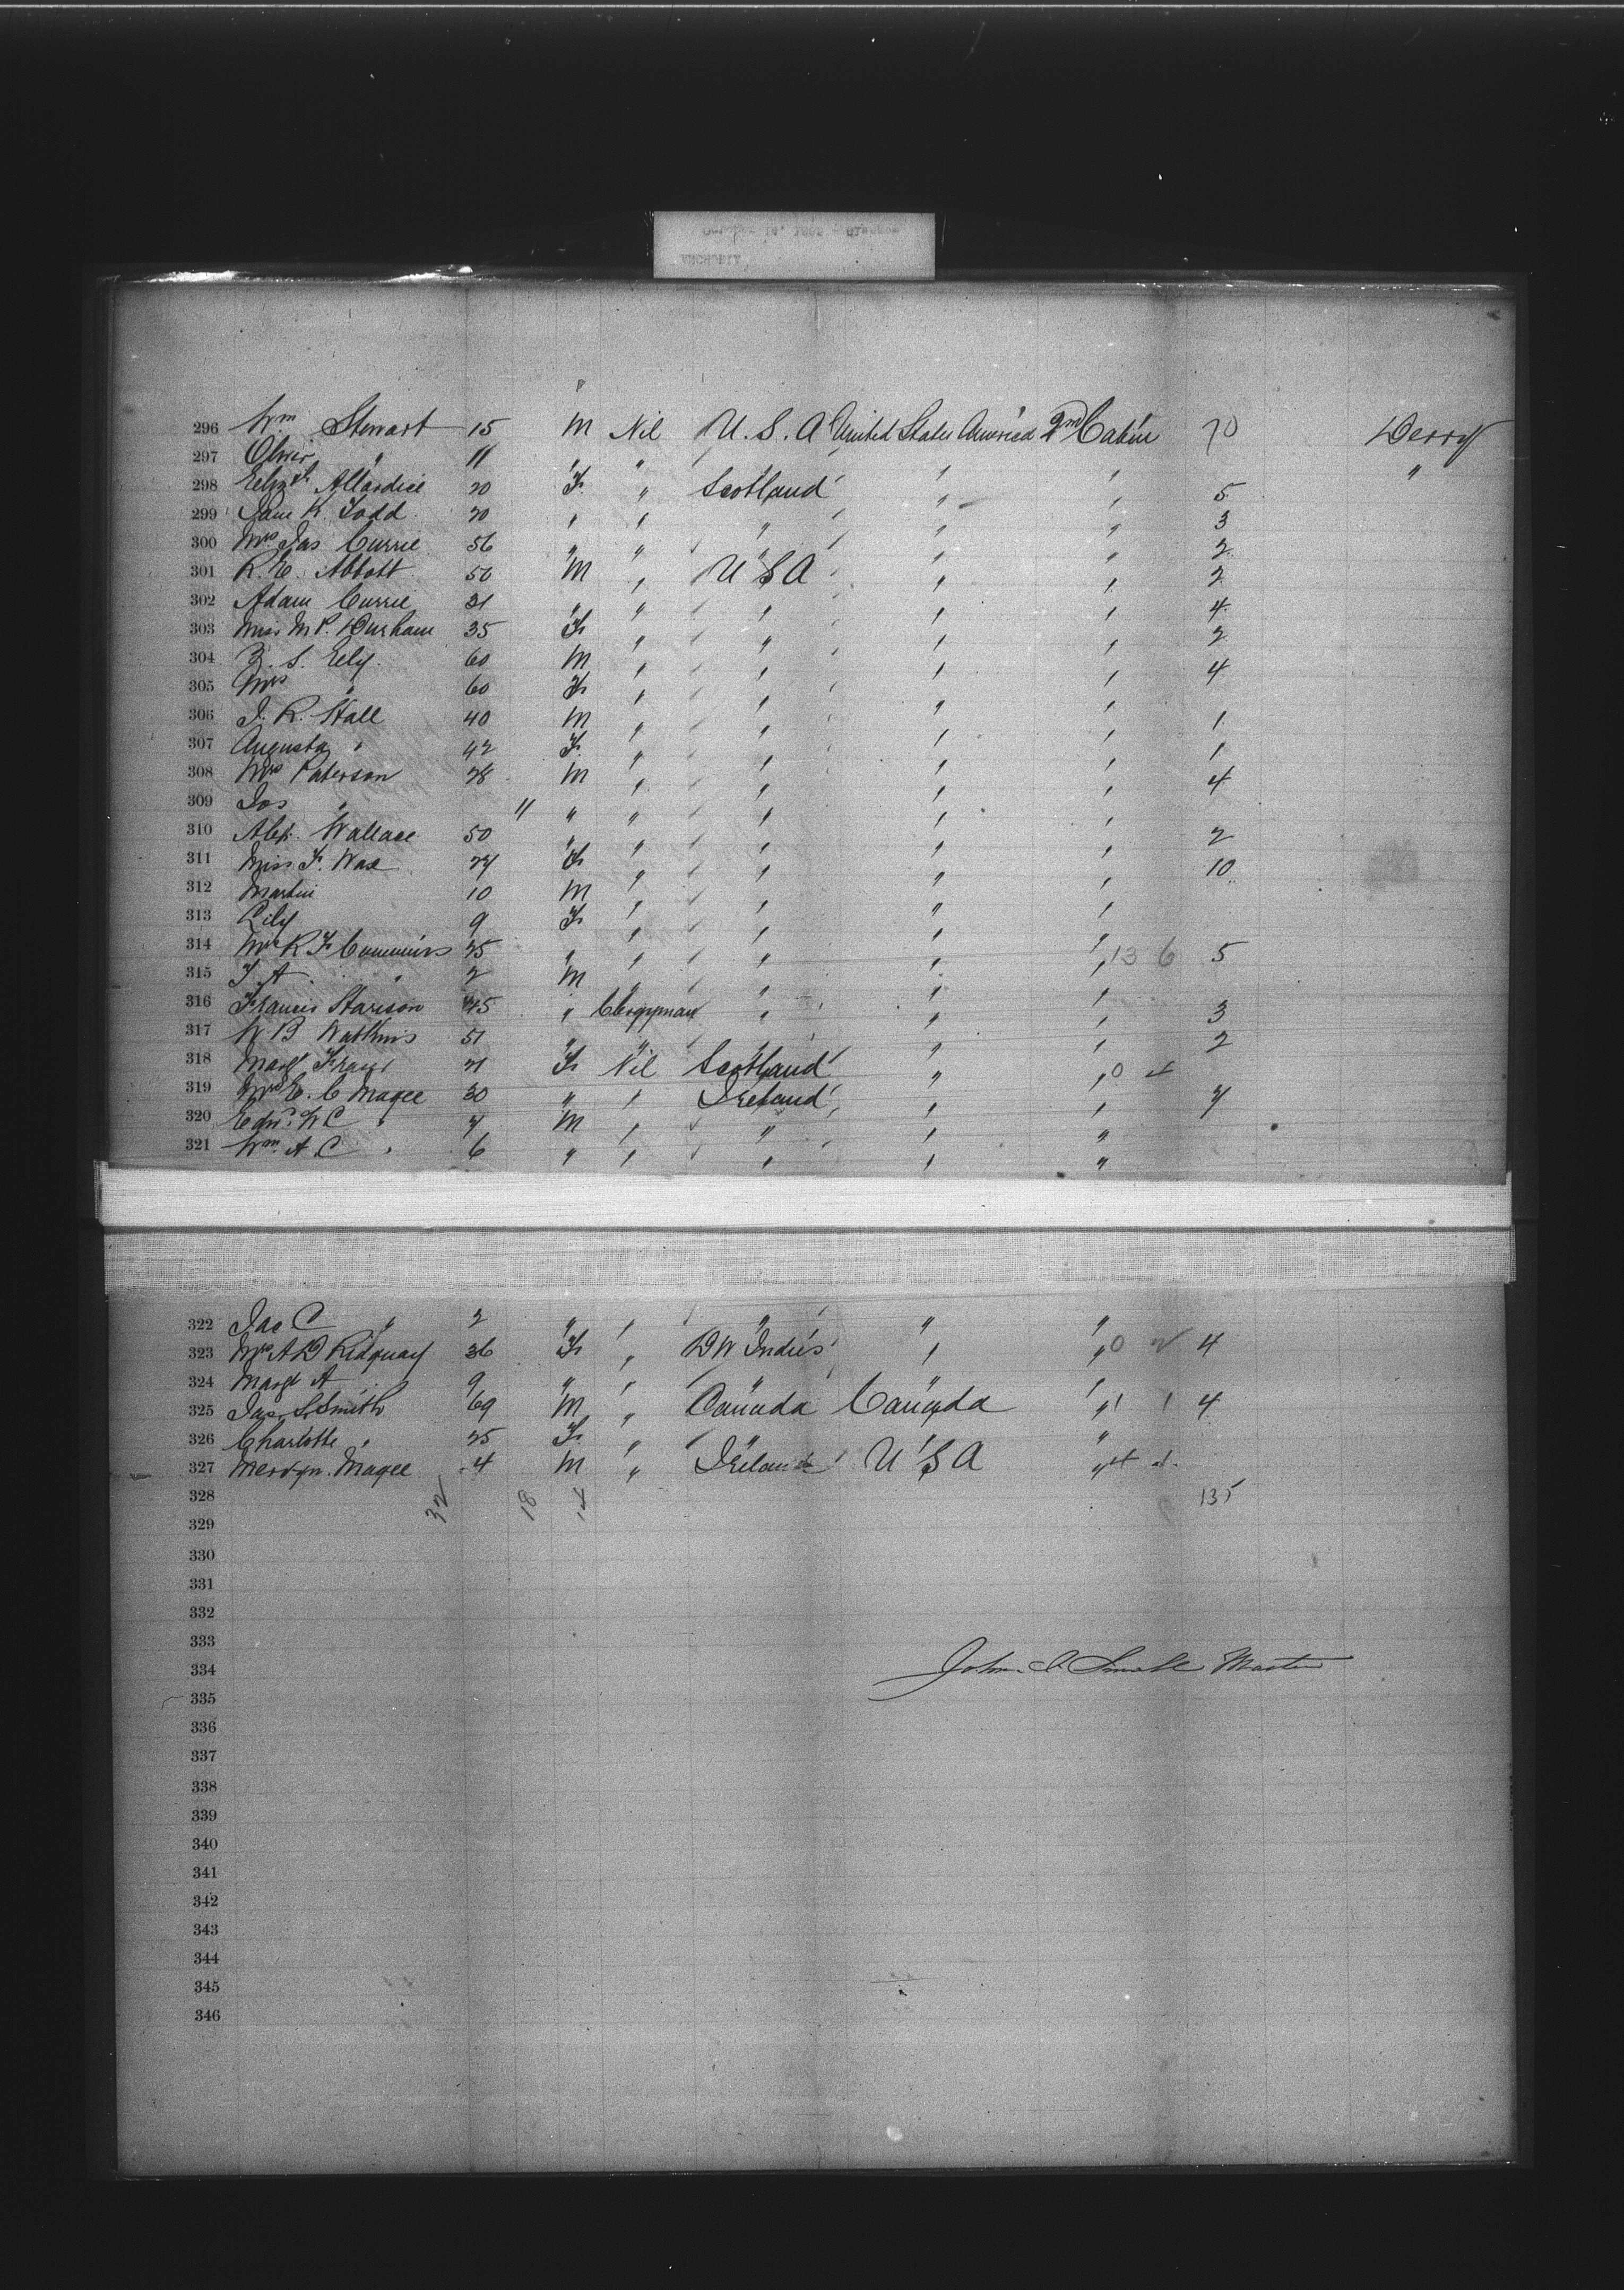 296 Wm Stewart 15 M Nil U.S.A United States America 2nd Cabin 70 Derry
297 Oliver " 11 " " " " " "
298 Elizth Allardice 20 F " Scotland " " 5
299 Jane K. Todd 20 " " " " " 3
300 Mrs Jas Currie 56 " " " " " 2
301 R. E. Abbott 50 M " U S A " " 2
302 Adam Currie 31 " " " " " 4
303 Miss M P. Durham 35 F " " " " 2
304 Z. S. Eely 60 M " " " " 4
305 Mrs " 60 F " " " "
306 J. R. Hall 40 M " " " " 1
307 Augusta " 42 F " " " " 1
308 Mrs Paterson 28 M " " " " 4
309 Jos " 11 " " " " "
310 Alex. Wallace 50 " " " " " 2
311 Miss F. Wax 24 F " " " " 10
312 Martin 10 M " " " "
313 Lily 9 F " " " "
314 Mrs R F Cummins 25 " " " " " 13 6 5
315 J A " 2 M " " " "
316 Francis Starison 45 " Clergyman " " " 3
317 W B Watkins 51 " " " " " 2
318 Margt 21 F Nil Scotland " " 0
319 Mrs E. C Magee 30 " " Ireland " " 7
320 Edw. W C " 7 M " " " "
321 Wm A C " 6 " " " " "
322 Jas C " 2 " " " " "
323 Mrs A D Ridguay 36 F " D W Indies " " 0 4
324 Margt A 9 " " " " "
325 Jas S Smith 69 M " Canada Canada " 1 1 4
326 Charlotte " 25 F " " " "
327 Mervyn Magee 4 M " Ireland U S A " 4
328 32 18 14 135
329
330
331
332
333
334 John S Small Master
335
336
337
338
339
340
341
342
343
344
345
346